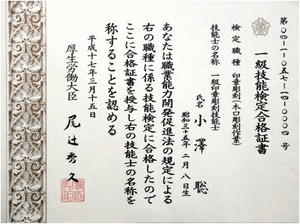 一級技能検定合格証書
検定職種 印章彫刻(木口彫刻作業)
技能士の名称 一級印章彫刻技能士
氏名 小澤 聡
昭和三十五年 二月 八日生
あなたは職業能力開発促進法の規定による
右の職種に係る技能検定に合格したので
ここに合格証書を授与し右の技能士の名称を
称することを認める
平成十七年三月十五日
厚生労働大臣 尾辻秀久